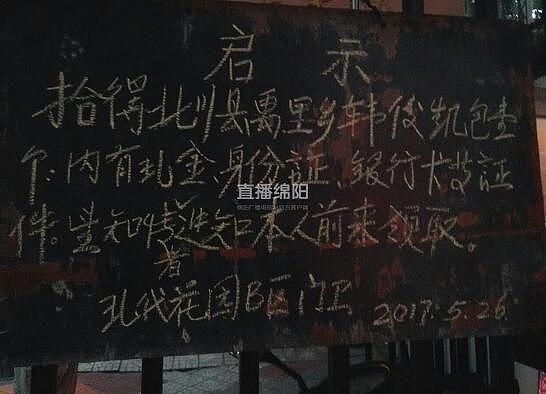 启示
拾得北川县禹里乡韦俊凯包壹
个:内有现金、身份证、银行卡、证
件。望知情者速知本人前来领取。
现代花园B区门卫 2017.5.26
直播绵阳